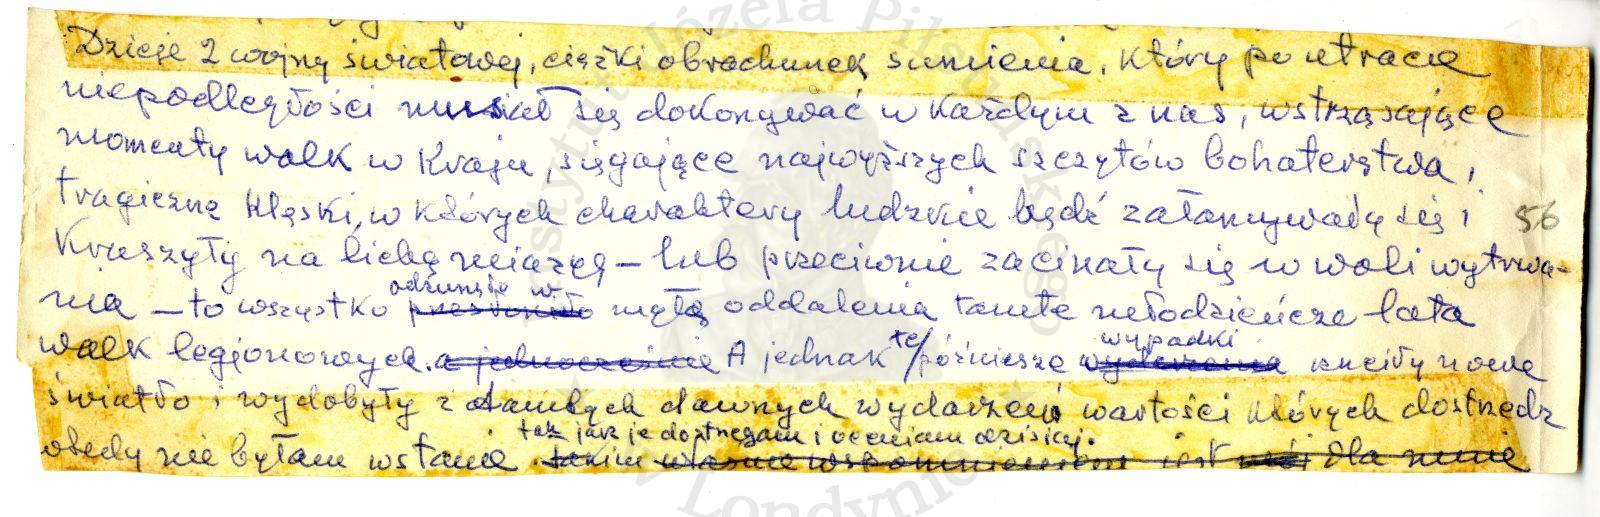 Dzieje 2 wojny światowej, ciężki obrachunek sumienia, który po utracie
niepodległości musiał się dokonywać w każdym z nas, wstrząsające
momenty walk w Kraju, sięgające najwyższych szczytów bohaterstwa,
tragiczne klęski, w których charaktery ludzkie bądź załamywały się i
56
kruszyły na lichą miazgę – lub przeciwnie zacinały się w woli wytrwa-
odsunęło w
nia – to wszystko przesłoniło mgłą oddalenia tamte młodzieńcze lata
te/ wypadki
walk legionowych. a jednocześnie A jednak późniejsze wydarzenia rzuciły nowe
światło i wydobyły z tamtych dawnych wydarzeń wartości których dostrzedz
tak jak je dostrzegam i oceniam dzisiaj.
wtedy nie byłam w stanie. takim własne wspomnieniem jest dla mnie
Instytut Józefa Piłsudskiego
w Londynie